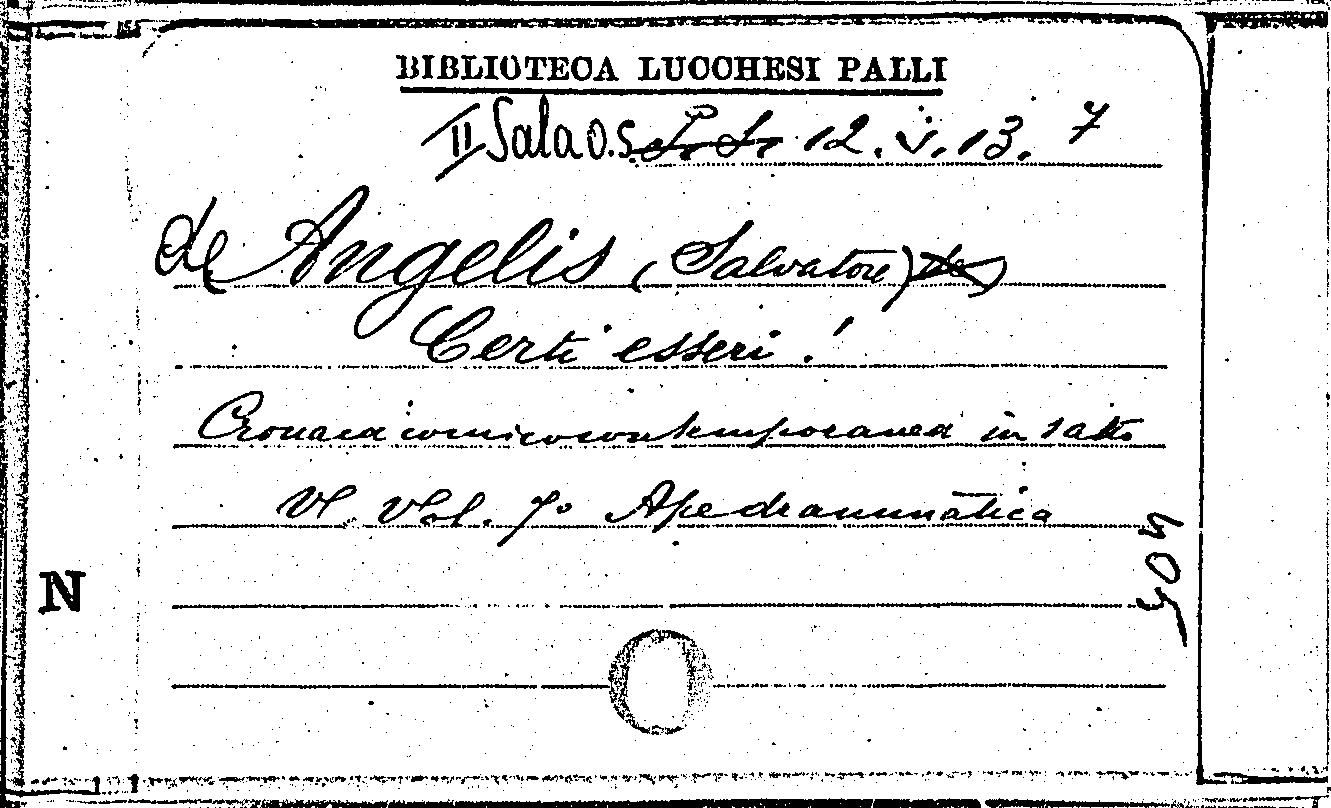 BIBLIOTECA LUCCHESI PALLI
II Sala O.S. 12. V. 13. 7
de Angelis (Salvatore)
Certi esseri!
Cronaca comicocontemporanea in 1 atto
V. Vol. 7º Ape drammatica
N